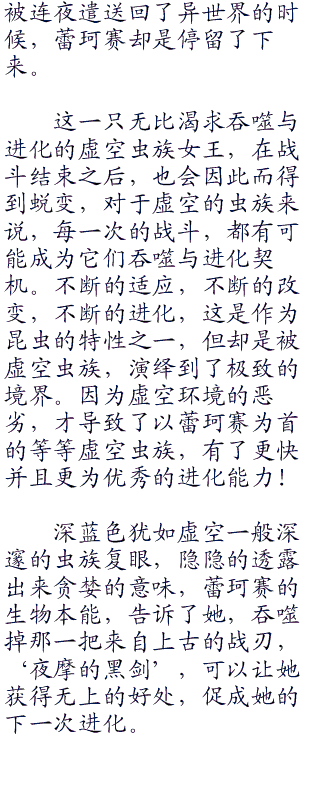 被连夜遣送回了异世界的时
候，蕾珂赛却是停留了下
来。
这一只无比渴求吞噬与
进化的虚空虫族女王，在战
斗结束之后，也会因此而得
到蜕变，对于虚空的虫族来
说，每一次的战斗，都有可
能成为它们吞噬与进化契
机。不断的适应，不断的改
变，不断的进化，这是作为
昆虫的特性之一，但却是被
虚空虫族，演绎到了极致的
境界。因为虚空环境的恶
劣，才导致了以蕾珂赛为首
的等等虚空虫族，有了更快
并且更为优秀的进化能力！
深蓝色犹如虚空一般深
邃的虫族复眼，隐隐的透露
出来贪婪的意味，蕾珂赛的
生物本能，告诉了她，吞噬
掉那一把来自上古的战刃，
‘夜摩的黑剑’，可以让她
获得无上的好处，促成她的
下一次进化。